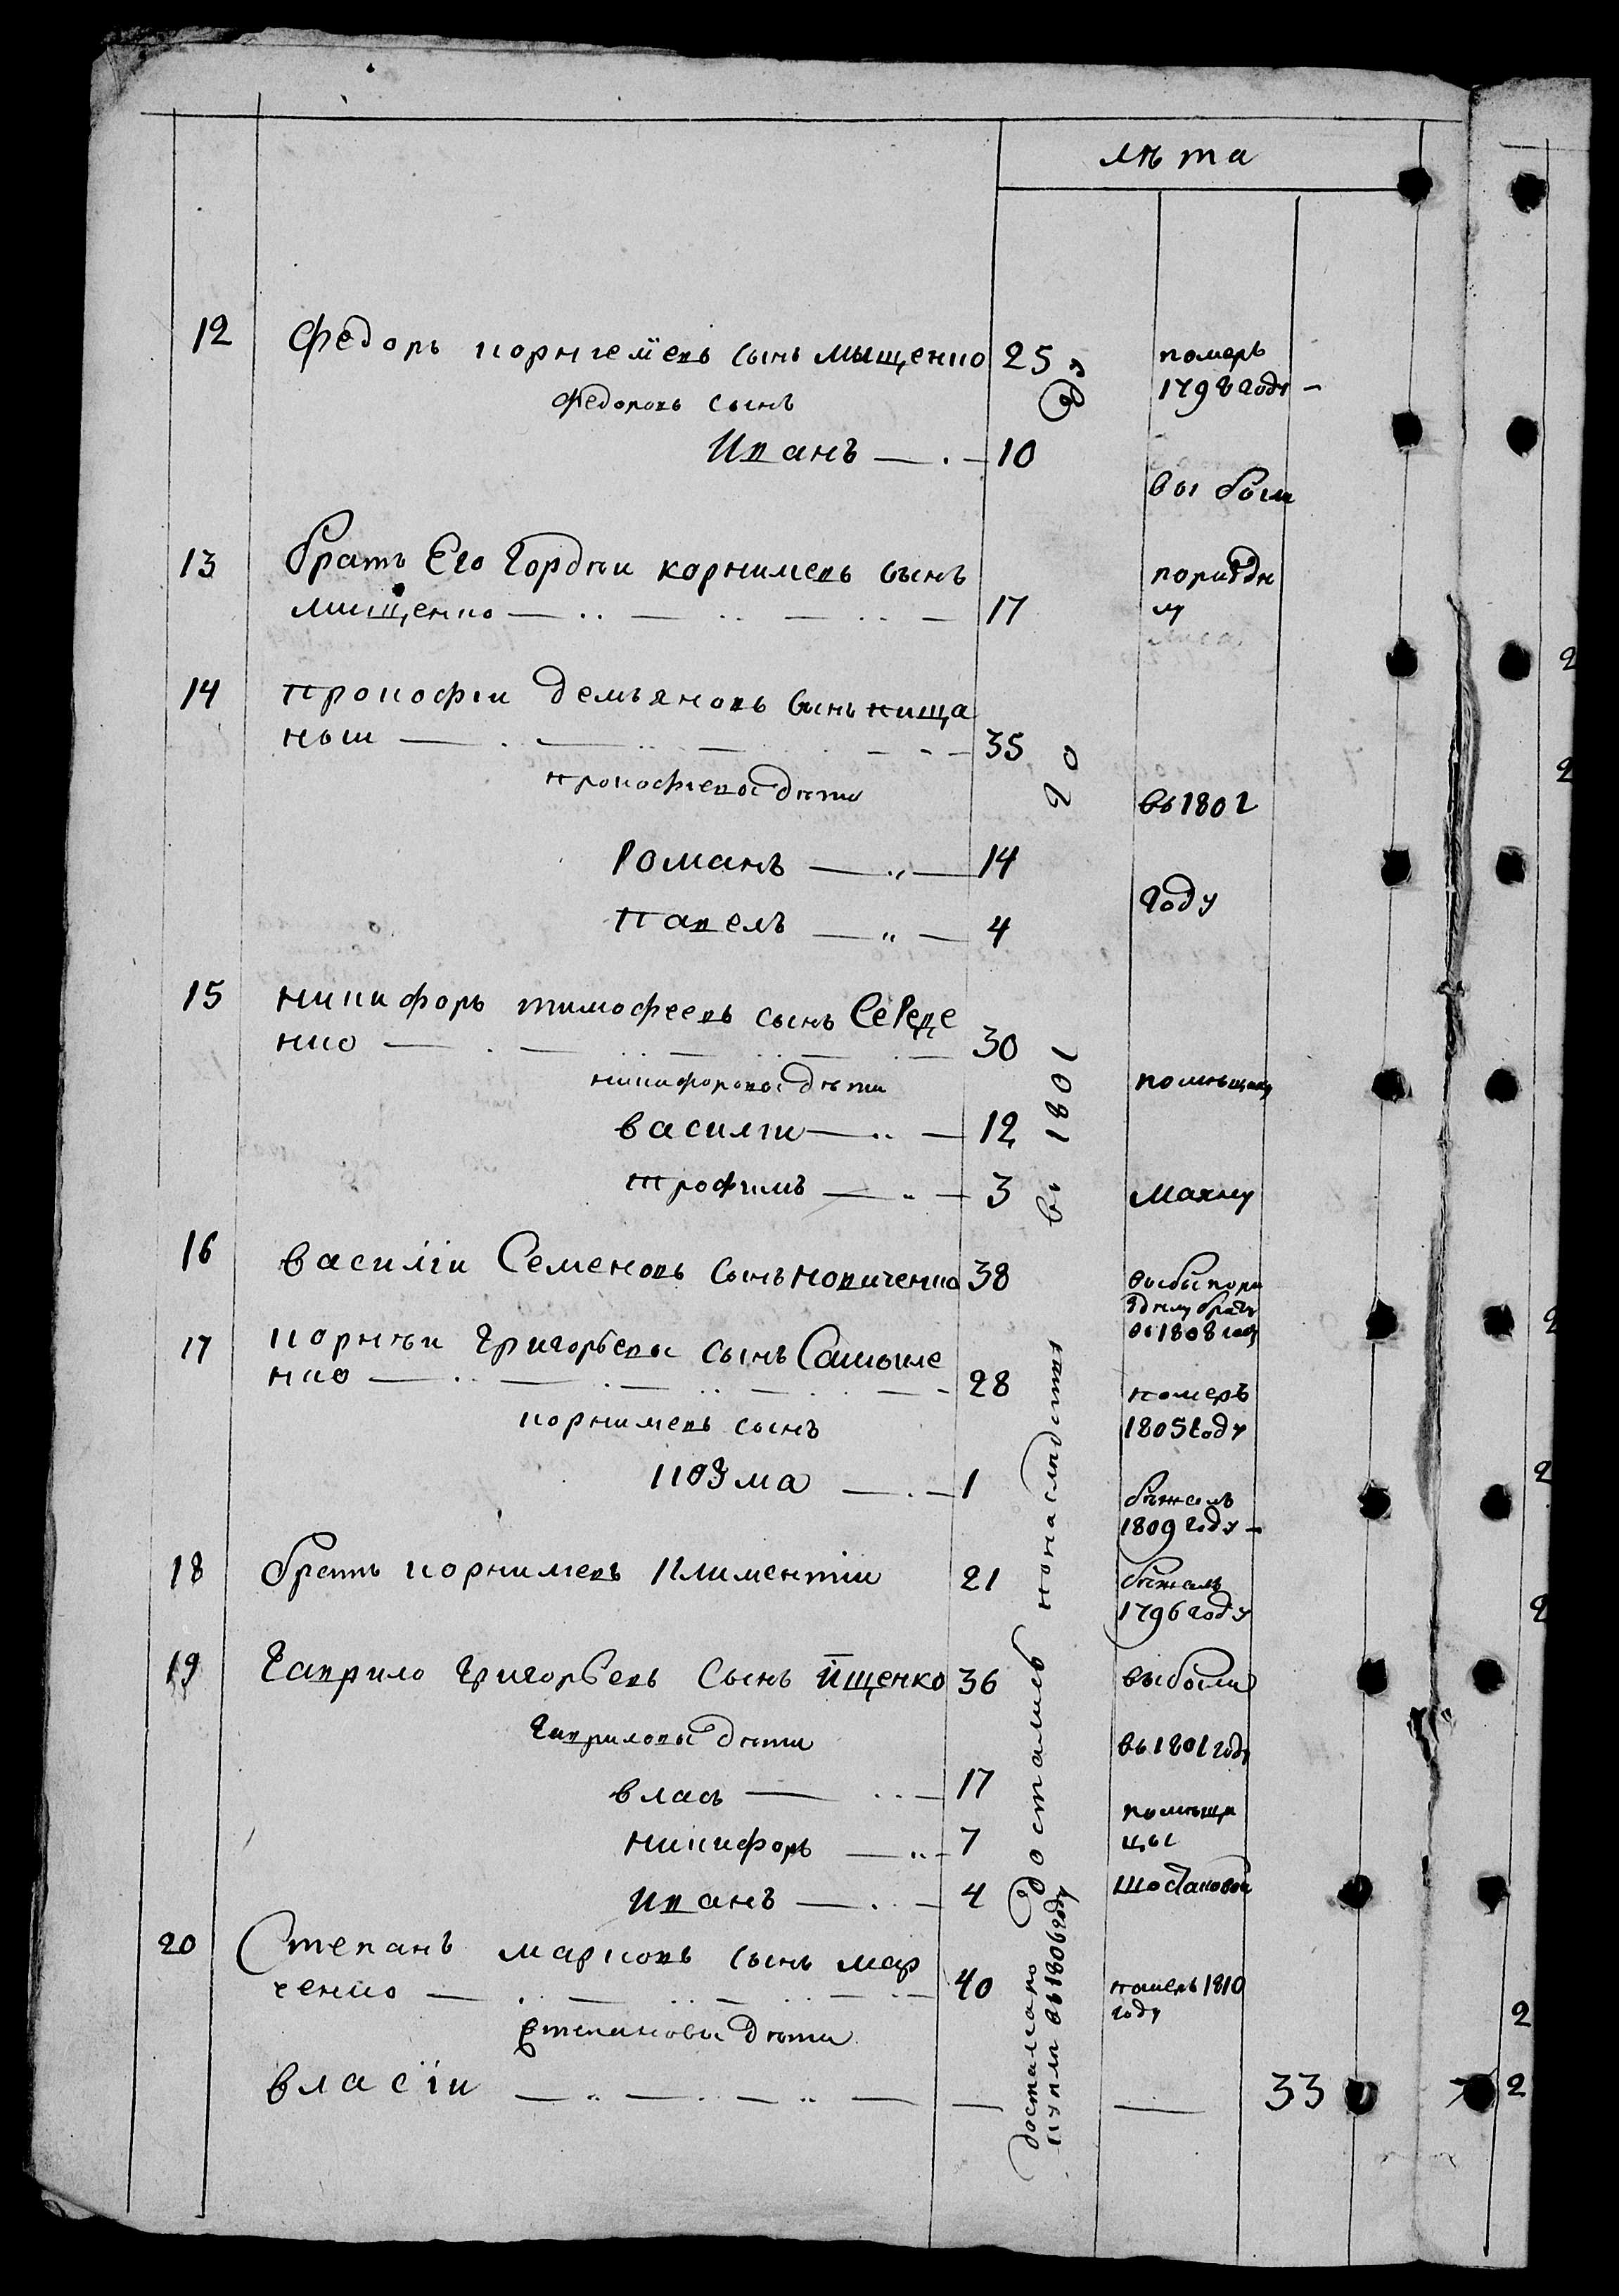 лѣта
12 Федоръ корнеевъ сынъ Мищенко 25 померъ
Федоровъ сынъ 1798 году
Иванъ 10
вы были
13 братъ Его Гордѣи корнилевъ сынъ
мищенко 17
14 прокофіи демьяновъ сынъ
35
прокофіевы дѣти въ 1801
Романъ 14
году
павелъ 4
15 никифоръ тимофеевъ сынъ Середе
нко 30
никифоровы дѣти помѣщику
василіи 12
трофимъ 3
въ 1801
Махну
16 василіи Семеновъ сынъ новиченко 38
въ 1808 году
17 корнѣи григорьевъ сынъ Самойле
нко 28 померъ
корнилевъ сынъ 1805 году
козма 1 бѣжалъ
1809 году
18 братъ корнилевъ Климентіи 21 бѣжалъ
1796 году
19 гаврило григорьевъ сынъ ищенко 36 выбыли
гавриловы дѣти въ 1801 году
власъ 17
помѣщи
никифоръ 7 цы
иванъ 4 Шостаковой
20 Степанъ марковъ сынъ мар
ченко 40 померъ 1810
году
Степановы дѣти
власіи — — 33
достались по наследству
въ 1806 году